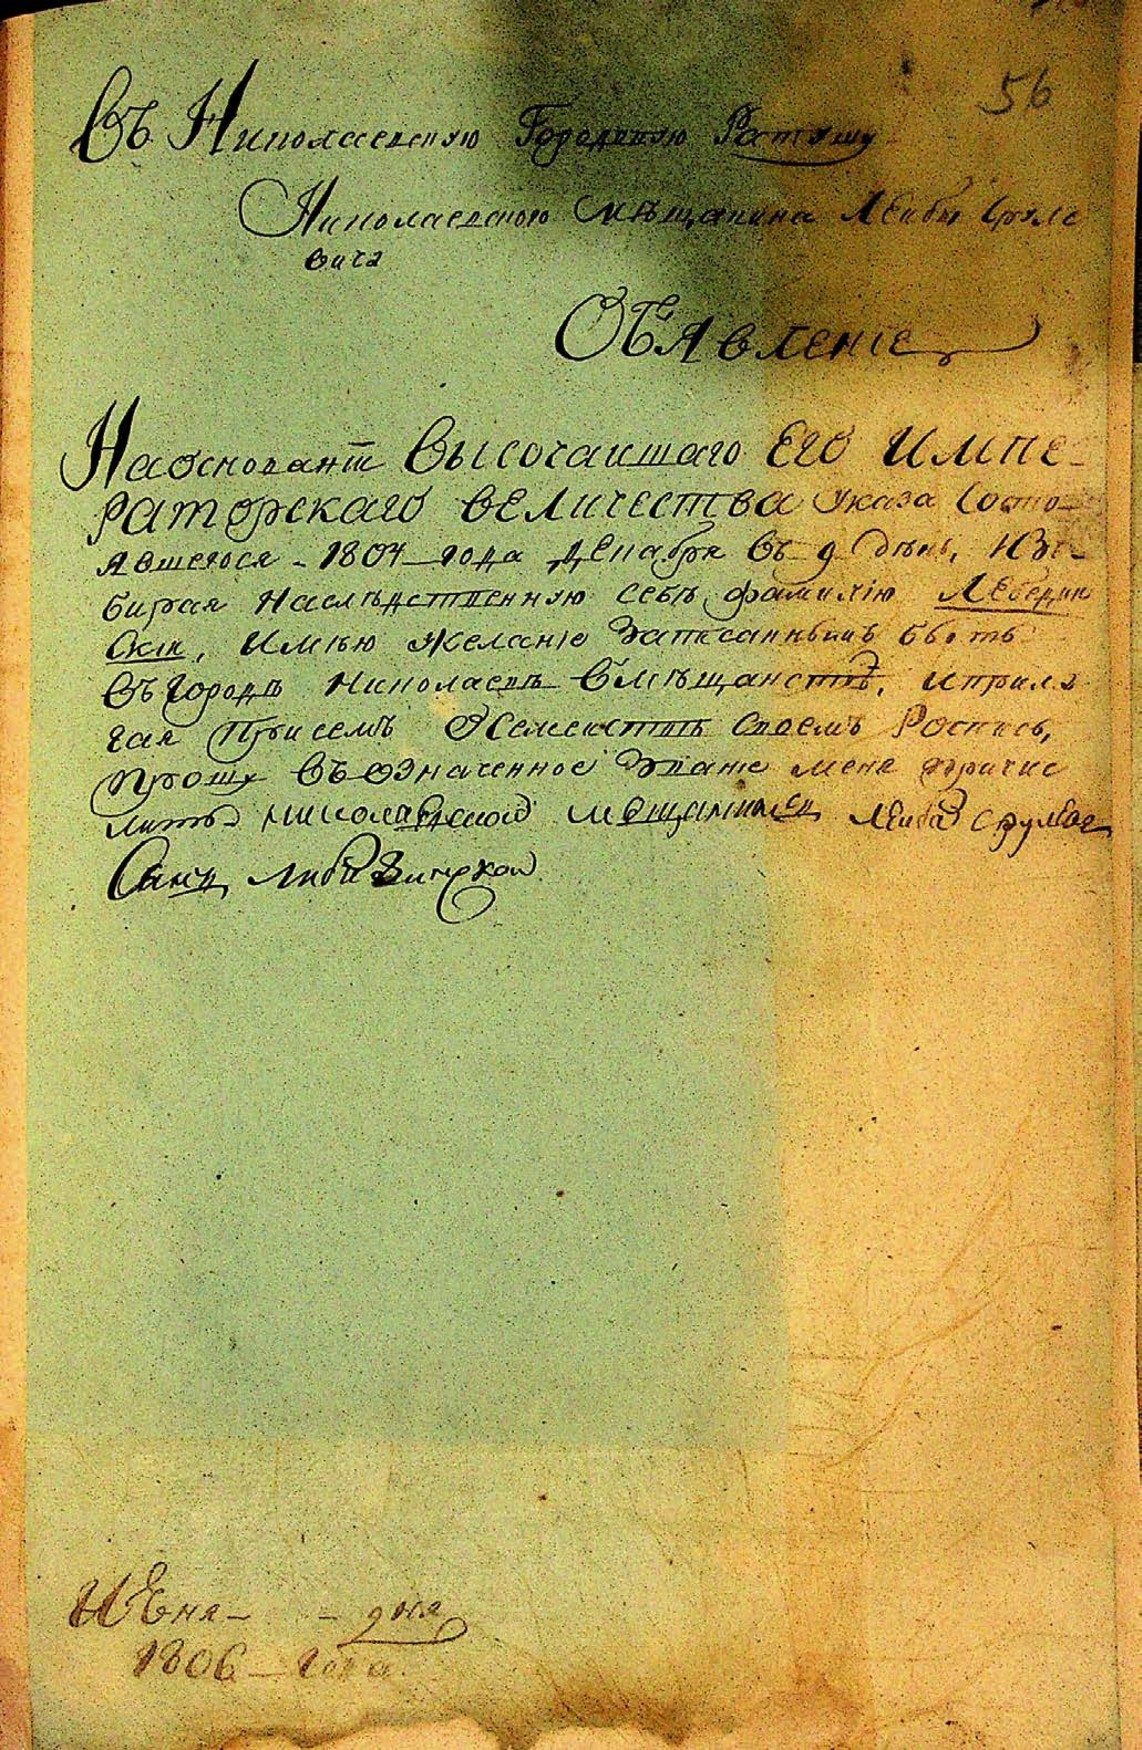 56
Въ Николаевскую Городскую Ратушу
Николаевского Мѣщанина Лейбы Сруле
вича
Объявленіе
На основаніи Высочаишаго Его Импе-
раторскаго величества Указа Состо-
явшегося - 1804 года Декабря въ 9 день, Изъ-
бирая Наслѣдственную себѣ фамилію Лебедин
Скія, Имѣю желаніе Записаннымъ быть
въ городѣ Николаевѣ в мѣщанствѣ, и прила
гая При семъ О Семействѣ своемъ Роспись,
прошу въ означенное Званіе меня причис
лить николаевской мещанинъ Леиба
1806 года